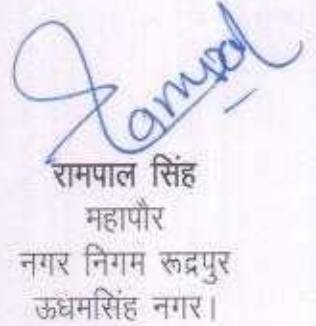 Rampal
रामपाल सिंह
महापौर
नगर निगम रूद्रपुर
ऊधमसिंह नगर।